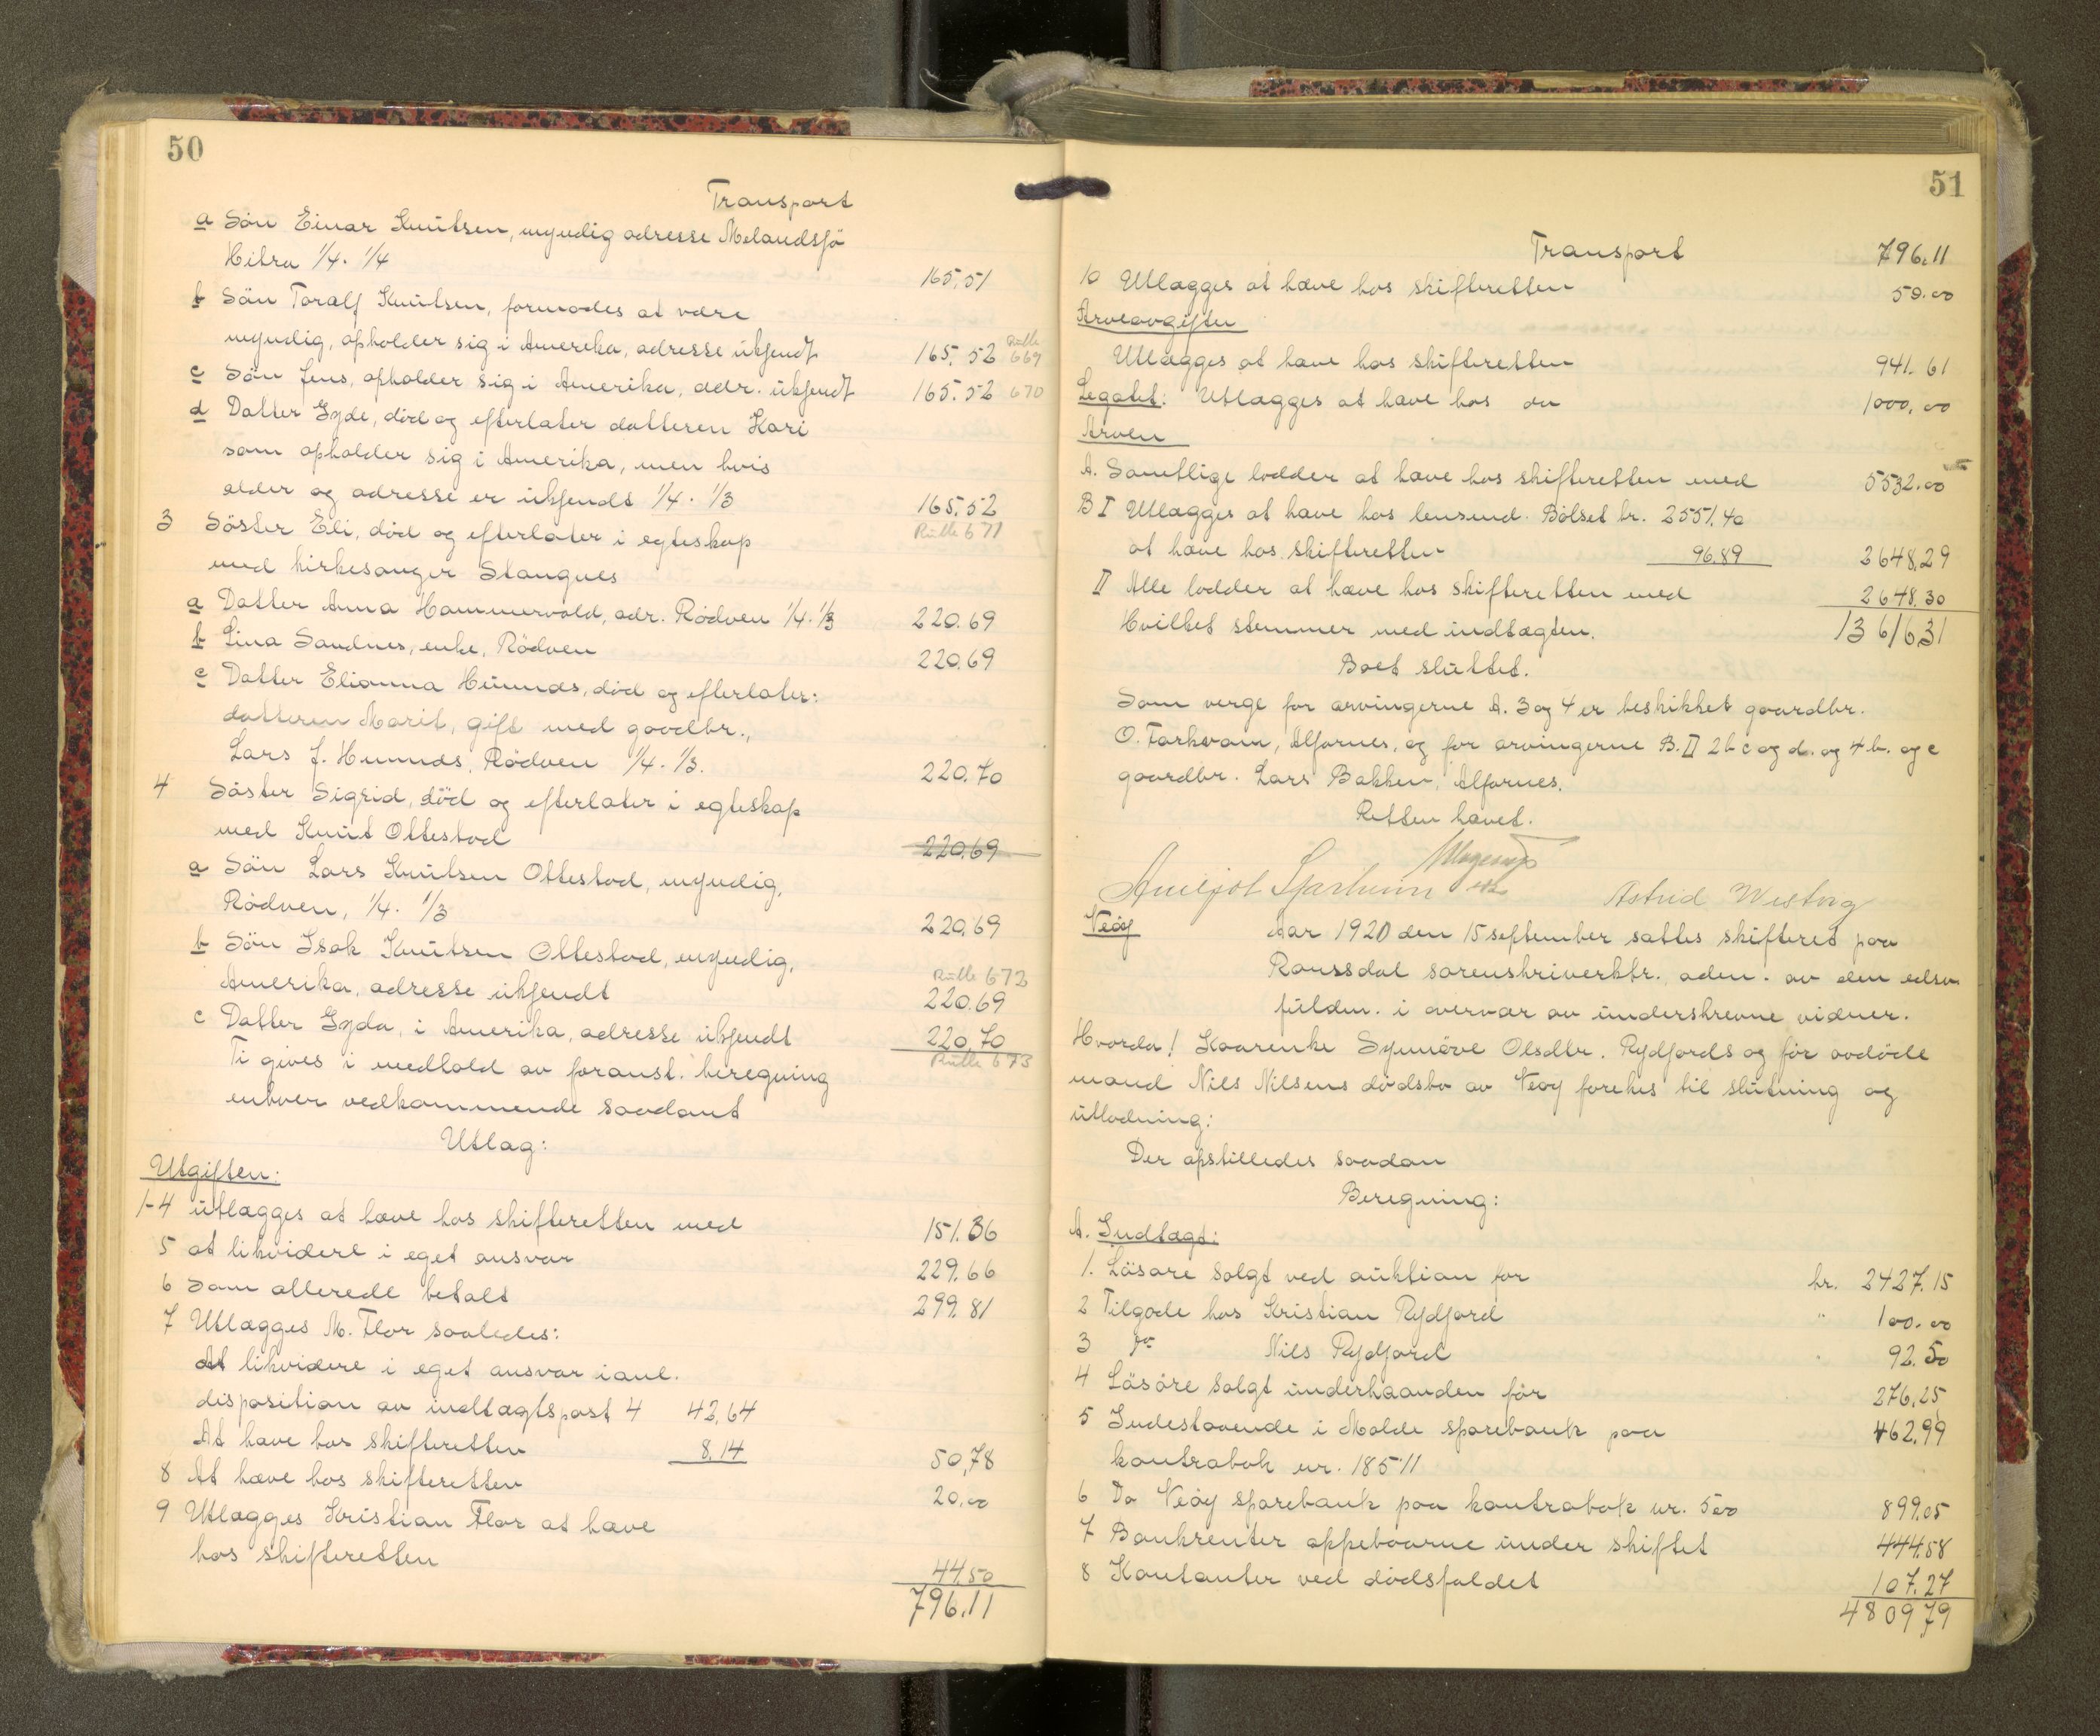 50
Transport
a Sön Einar Knutsen, myndig adresse Melandsjö
Hitra 1/4 · 1/4 165,51
b Sön Toralf Knutsen, formodes at være
myndig, opholder sig i Amerika, adresse ukjendt 165,52 Rulle 669
c Sön Jens, opholder sig i Amerika, adr. ukjendt 165.52 670
d Datter Gyde, död og efterlater datteren Kari
som opholder sig i Amerika, men hvis
alder og adresse er ukjendt 1/4 · 1/3 165,52
3 Söster Eli, död og efterlater i egteskap Rulle 671
med kirkesanger Stangnes
a Datter Anna Hammervold, adr. Rödven 1/4 · 1/3 220.69
b Lina Sandnes, enke, Rödven 220,69
c Datter Elianna Hunnes, död og efterlater:
datteren Marit, gift med gaardbr.,
Lars J. Hunnes, Rödven 1/4 · 1/3. 220,70
4 Söster Sigrid, död og efterlater i egteskap
med Knut Ottestad 220,69
a Sön Lars Knutsen Ottestad, myndig,
Rödven, 1/4 · 1/3 220,69
b Sön Isak Knutsen Ottestad, myndig, Rulle 672
Amerika, adresse ukjendt 220.69
c Datter Gyda, i Amerika, adresse ukjendt 220,70
Ti gives i medhold av foranst. beregning Rulle 673
enhver vedkommende saadant
Utlag:
Utgiften:
1-4 utlægges at hæve hos skifteretten med 151.36
5 at likvidere i eget ansvar 229,66
6 Som allerede betalt 299.81
7 Utlægges M. Flor saaledes:
At likvidere i eget ansvar ianl.
disposition av indtægtspost 4 42,64
At hæve hos skifteretten 8,14 50,78
8 At hæve hos skifteretten 20,00
9 Utlægges Kristian Flor at hæve
hos skifteretten 44,50
796.11
51
Transport 796,11
10 Utlægges at hæve hos skifteretten 50.00
Arveavgiften
Utlægges at hæve hos skifteretten 941.61
Legatet: Utlægges at hæve hos do 1000,00
Arven
A. Samtlige lodder at hæve hos skifteretten med 5532.00
B I Utlægges at hæve hos lensmd. Bölset kr. 2551.40
at hæve hos skifteretten 96.89 2648,29
II Alle lodder at hæve hos skifteretten med 2648.30
Hvilket stemmer med indtægten. 13616,31
Boet sluttet.
Som verge for arvingerne A. 3 og 4 er beskikket gaardbr.
O. Torkvam, Alfarnes, og for arvingerne B. II 2 b c og d. og 4 b. og c
gaardbr. Lars Bakken, Alfarnes.
Retten hævet.
Astrid Westvig
Veöy Aar 1920 den 15 september sattes skifteret paa
Romsdal sorenskriverktr. adm. av den edsv.
fuldm. i overvær av underskrevne vidner.
Hvorda! Kaarenke Synnöve Olsdtr. Rydjords og før avdöde
mand Nils Nilsens dödsbo av Veöy foretoes til slutning og
utlodning:
Der opstilledes saadan
Beregning:
A. Indtægt:
1. Lösöre solgt ved auktion for kr. 2427,15
2 Tilgode hos Kristian Rydjord " 100.00
3 do Nils Rydjord " 92.50
4 Lösöre solgt underhaanden før 276,25
5 Indestaaende i Molde sparebank paa 462,99
kontrabok nr. 18511
6 Do Veöy sparebank paa kontrabok nr. 500 899,05
7 Bankrenter oppebaarne under skiftet 444,58
8 Kontanter ved dödsfaldet 107,27
4809,79